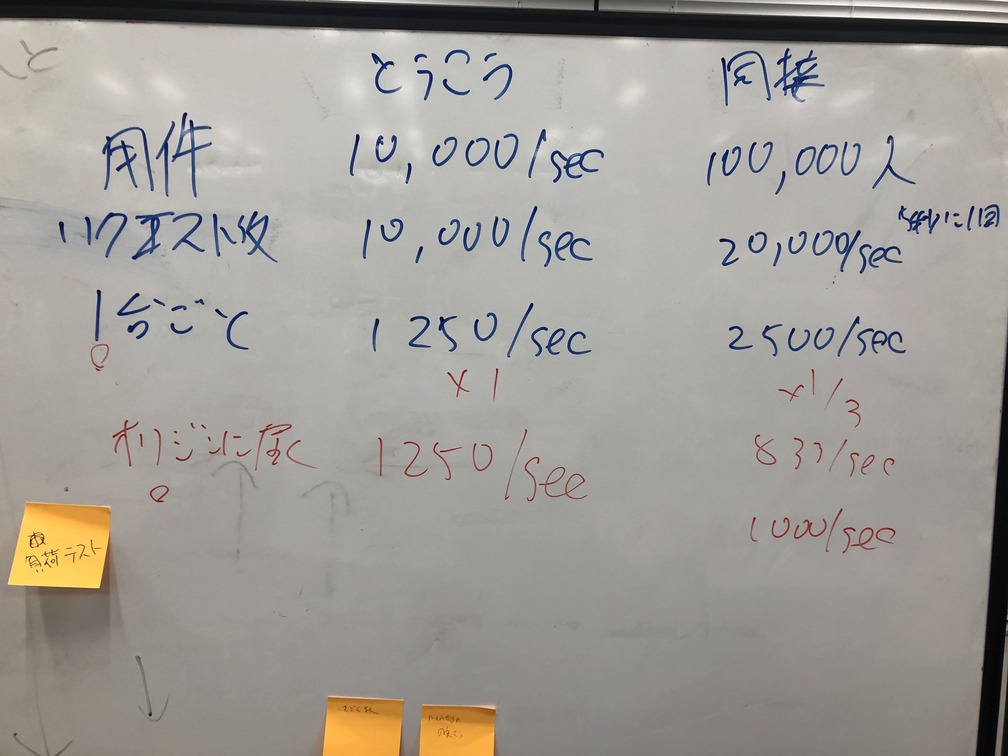 とうこう 同接
用件 10,000/sec 100,000人
リクエスト数 10,000/sec 20,000/sec に1回
1台ごと 1250/sec 2500/sec
×1 ×1/3
オリジンに届く 1250/sec 833/sec
1000/sec
負荷テスト